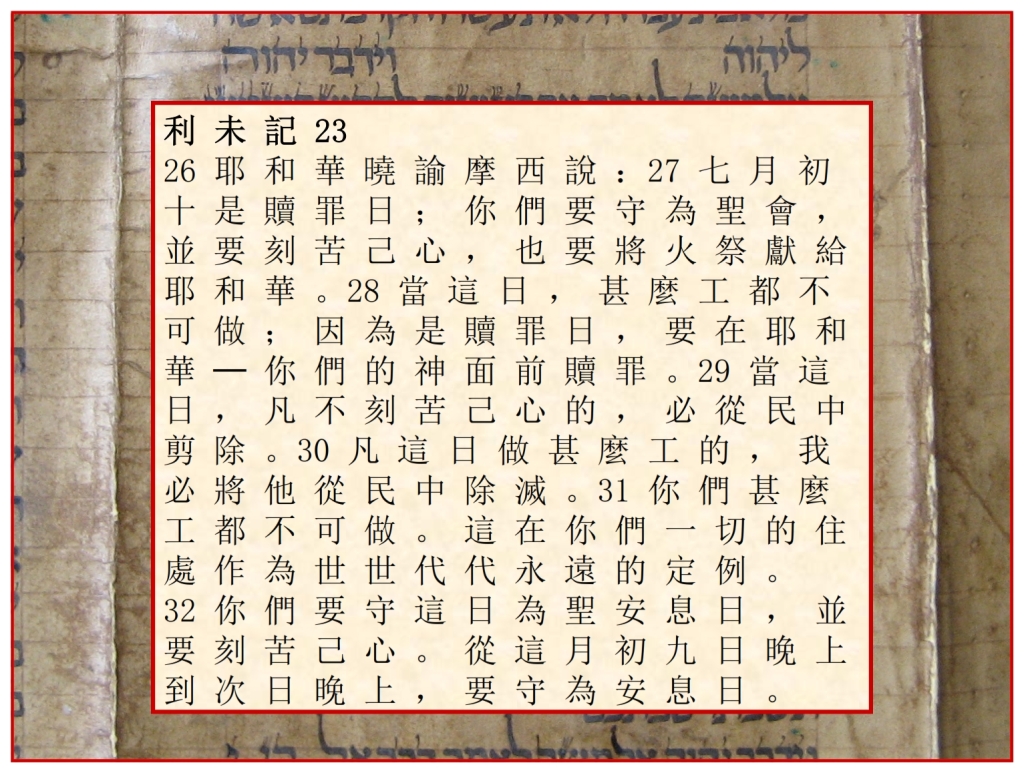 ליהוה וידבר יהוה
利未記 23
26 耶和華曉諭摩西說：27 七月初
十是贖罪日；你們要守為聖會，
並要刻苦己心，也要將火祭獻給
耶和華。28 當這日，甚麼工都不
可做；因為是贖罪日，要在耶和
華─你們的神面前贖罪。29 當這
日，凡不刻苦己心的，必從民中
剪除。30 凡這日做甚麼工的，我
必將他從民中除滅。31 你們甚麼
工都不可做。這在你們一切的住
處作為世世代代永遠的定例。
32 你們要守這日為聖安息日，並
要刻苦己心。從這月初九日晚上
到次日晚上，要守為安息日。